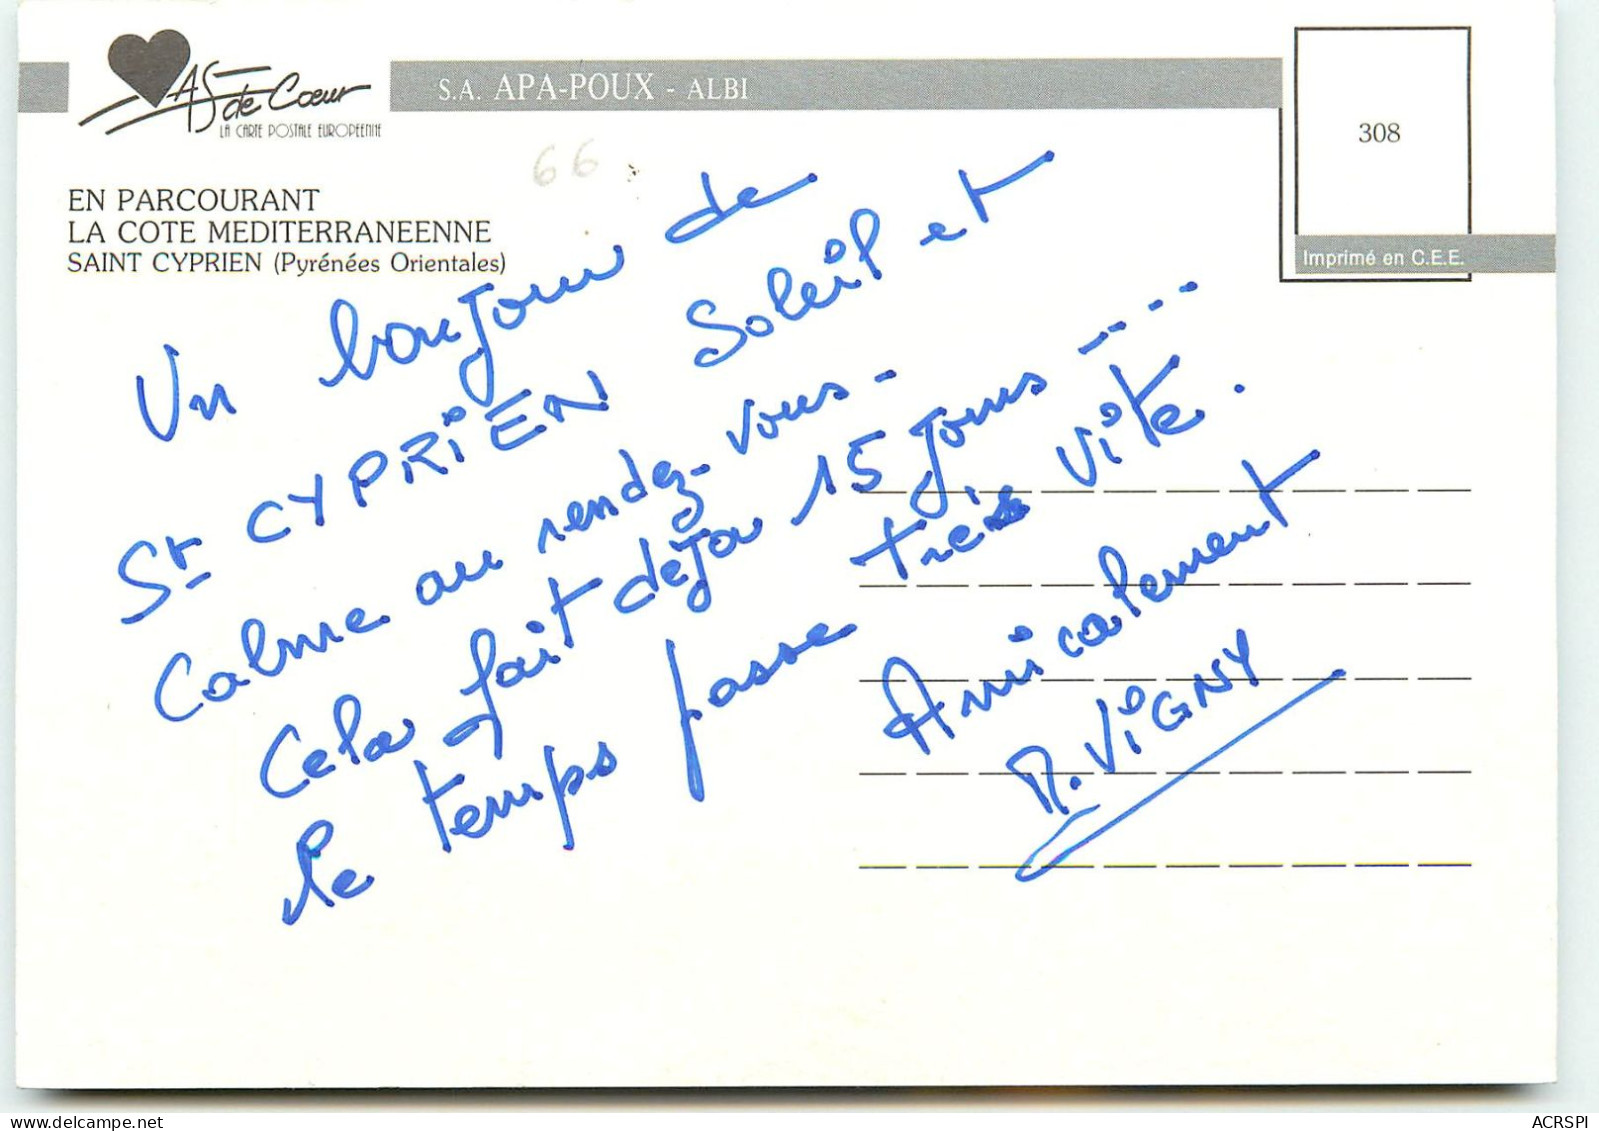 AS de Coeur
LA CARTE POSTALE EUROPEENNE
S.A. APA-POUX - ALBI
308
Imprimé en C.E.E.
66
EN PARCOURANT
LA COTE MEDITERRANEENNE
SAINT CYPRIEN (Pyrénées Orientales)
Un bonjour de
St CYPRIEN Soleil et
Calme au rendez-vous-
Cela fait déjà 15 jours ....
le temps passe très vite.
Amicalement
R. ViGNY
ACRSPI